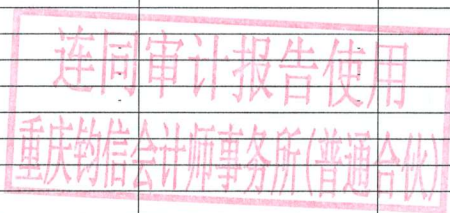 连同审计报告使用
重庆钧信会计师事务所(普通合伙)